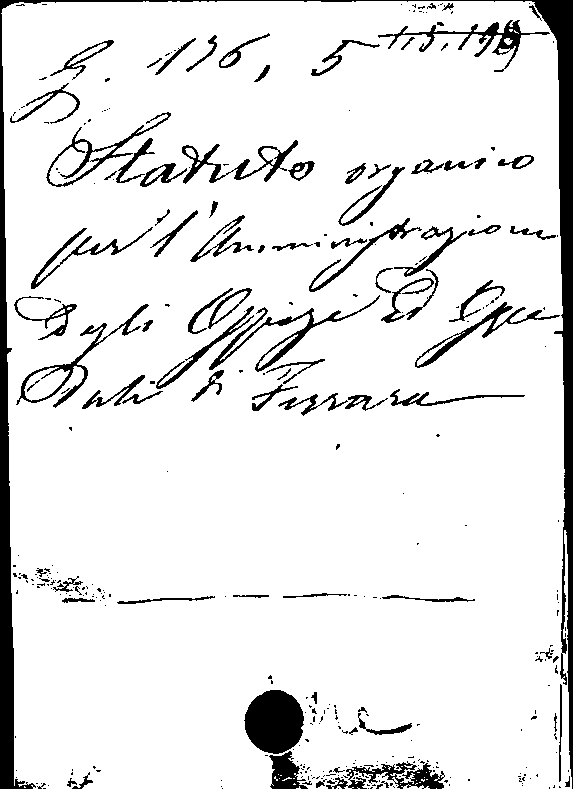 G. 136, 5
Statuto organico
per l'Amministrazione
Degli Ospizi Ed Ospe
Dali di Ferrara